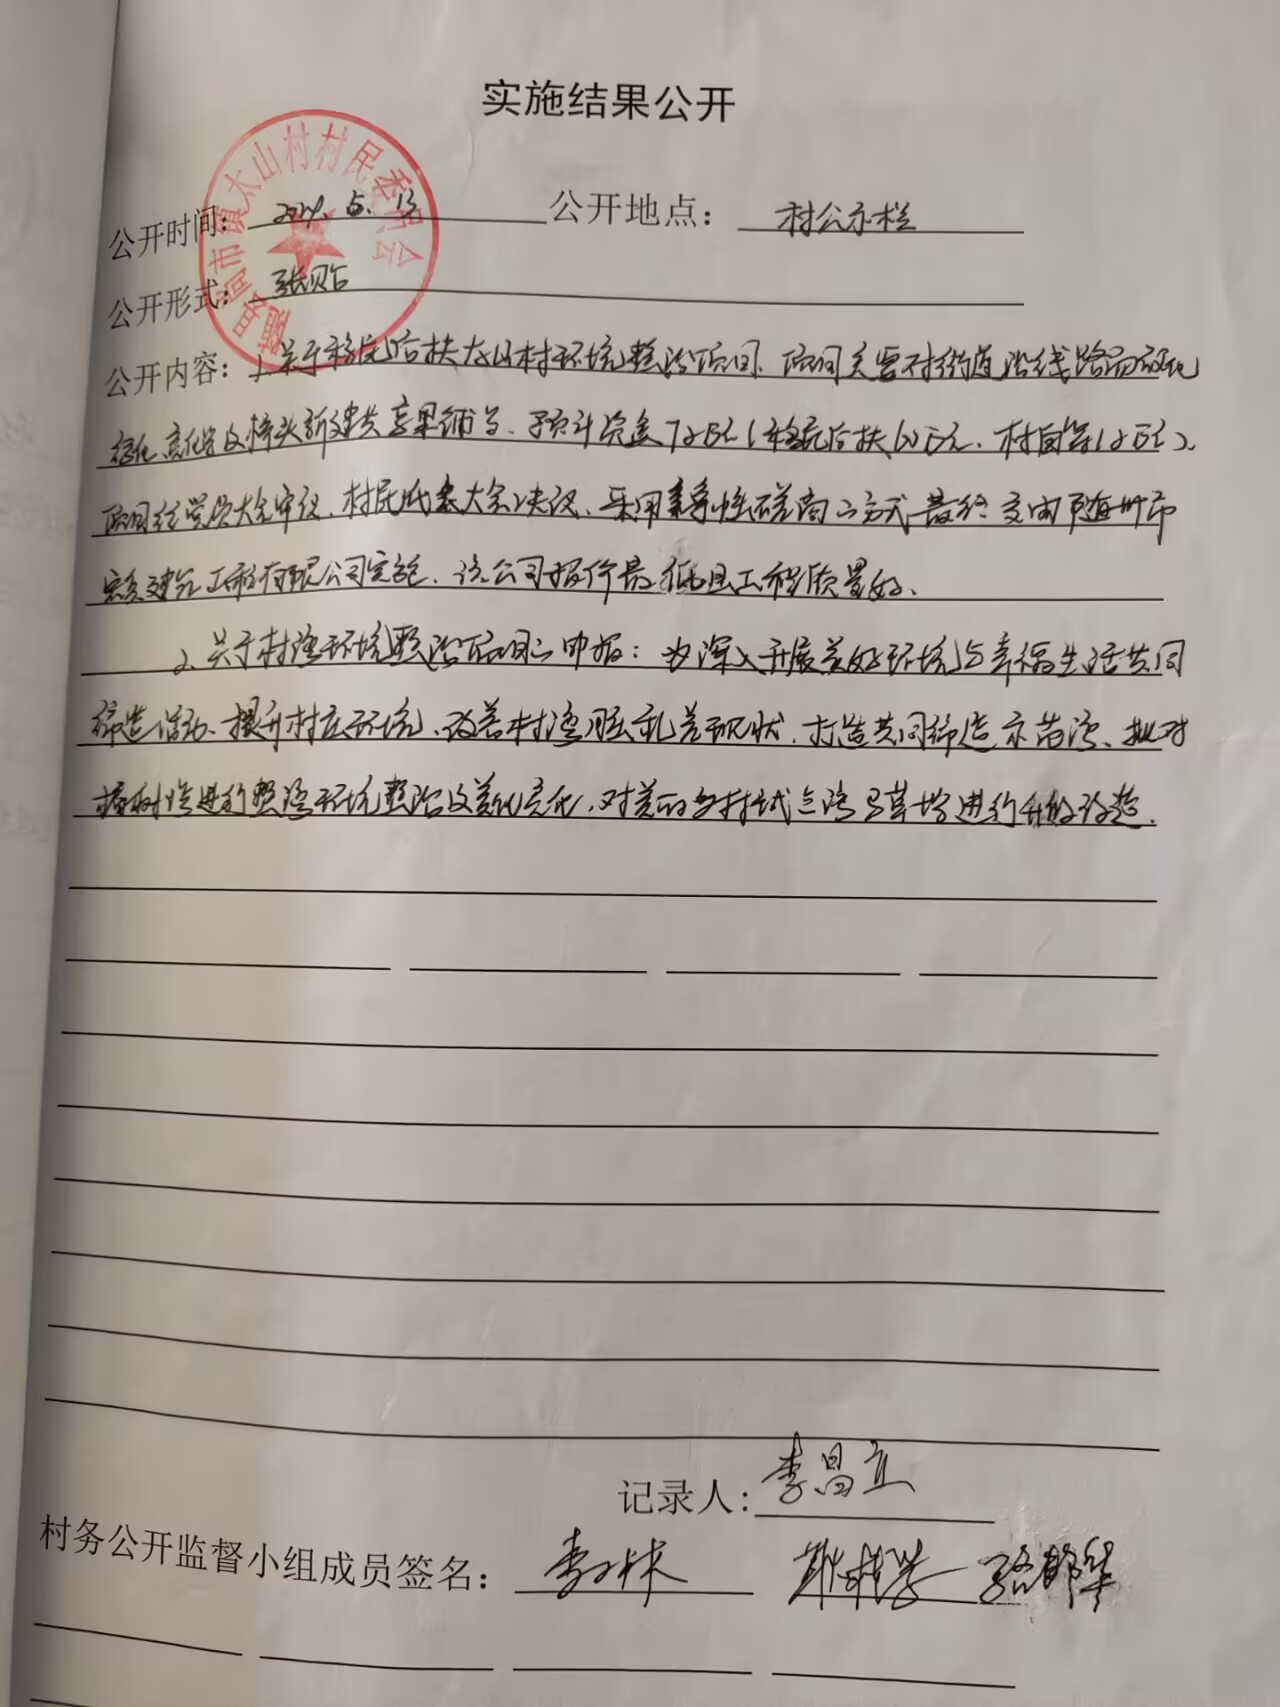 实施结果公开
随县尚市镇太山村村民委员会
公开时间: 2024.5.13 公开地点: 村公示栏
公开形式: 张贴
公开内容: 1.关于移民后扶太山村环境整治项目、项目主要对沿线路面
亮化及 新建共享果铺等、预计资金72万元(移民后扶60万元、村自筹12万元)、
项目经党员大会审议、村民代表大会决议、采用竞争性磋商的方式最终交由随州市
建筑工程有限公司实施、该公司报价最低且工程质量好、
2.关于村湾环境整治项目的申报: 为深入开展美好环境与幸福生活共同
缔造活动、提升村庄环境、改善村湾脏乱差现状、打造共同缔造示范湾、拟对
进行整湾环境整治及美化亮化、对美丽乡村试点湾 进行升级改造.
记录人: 李昌立
村务公开监督小组成员签名: